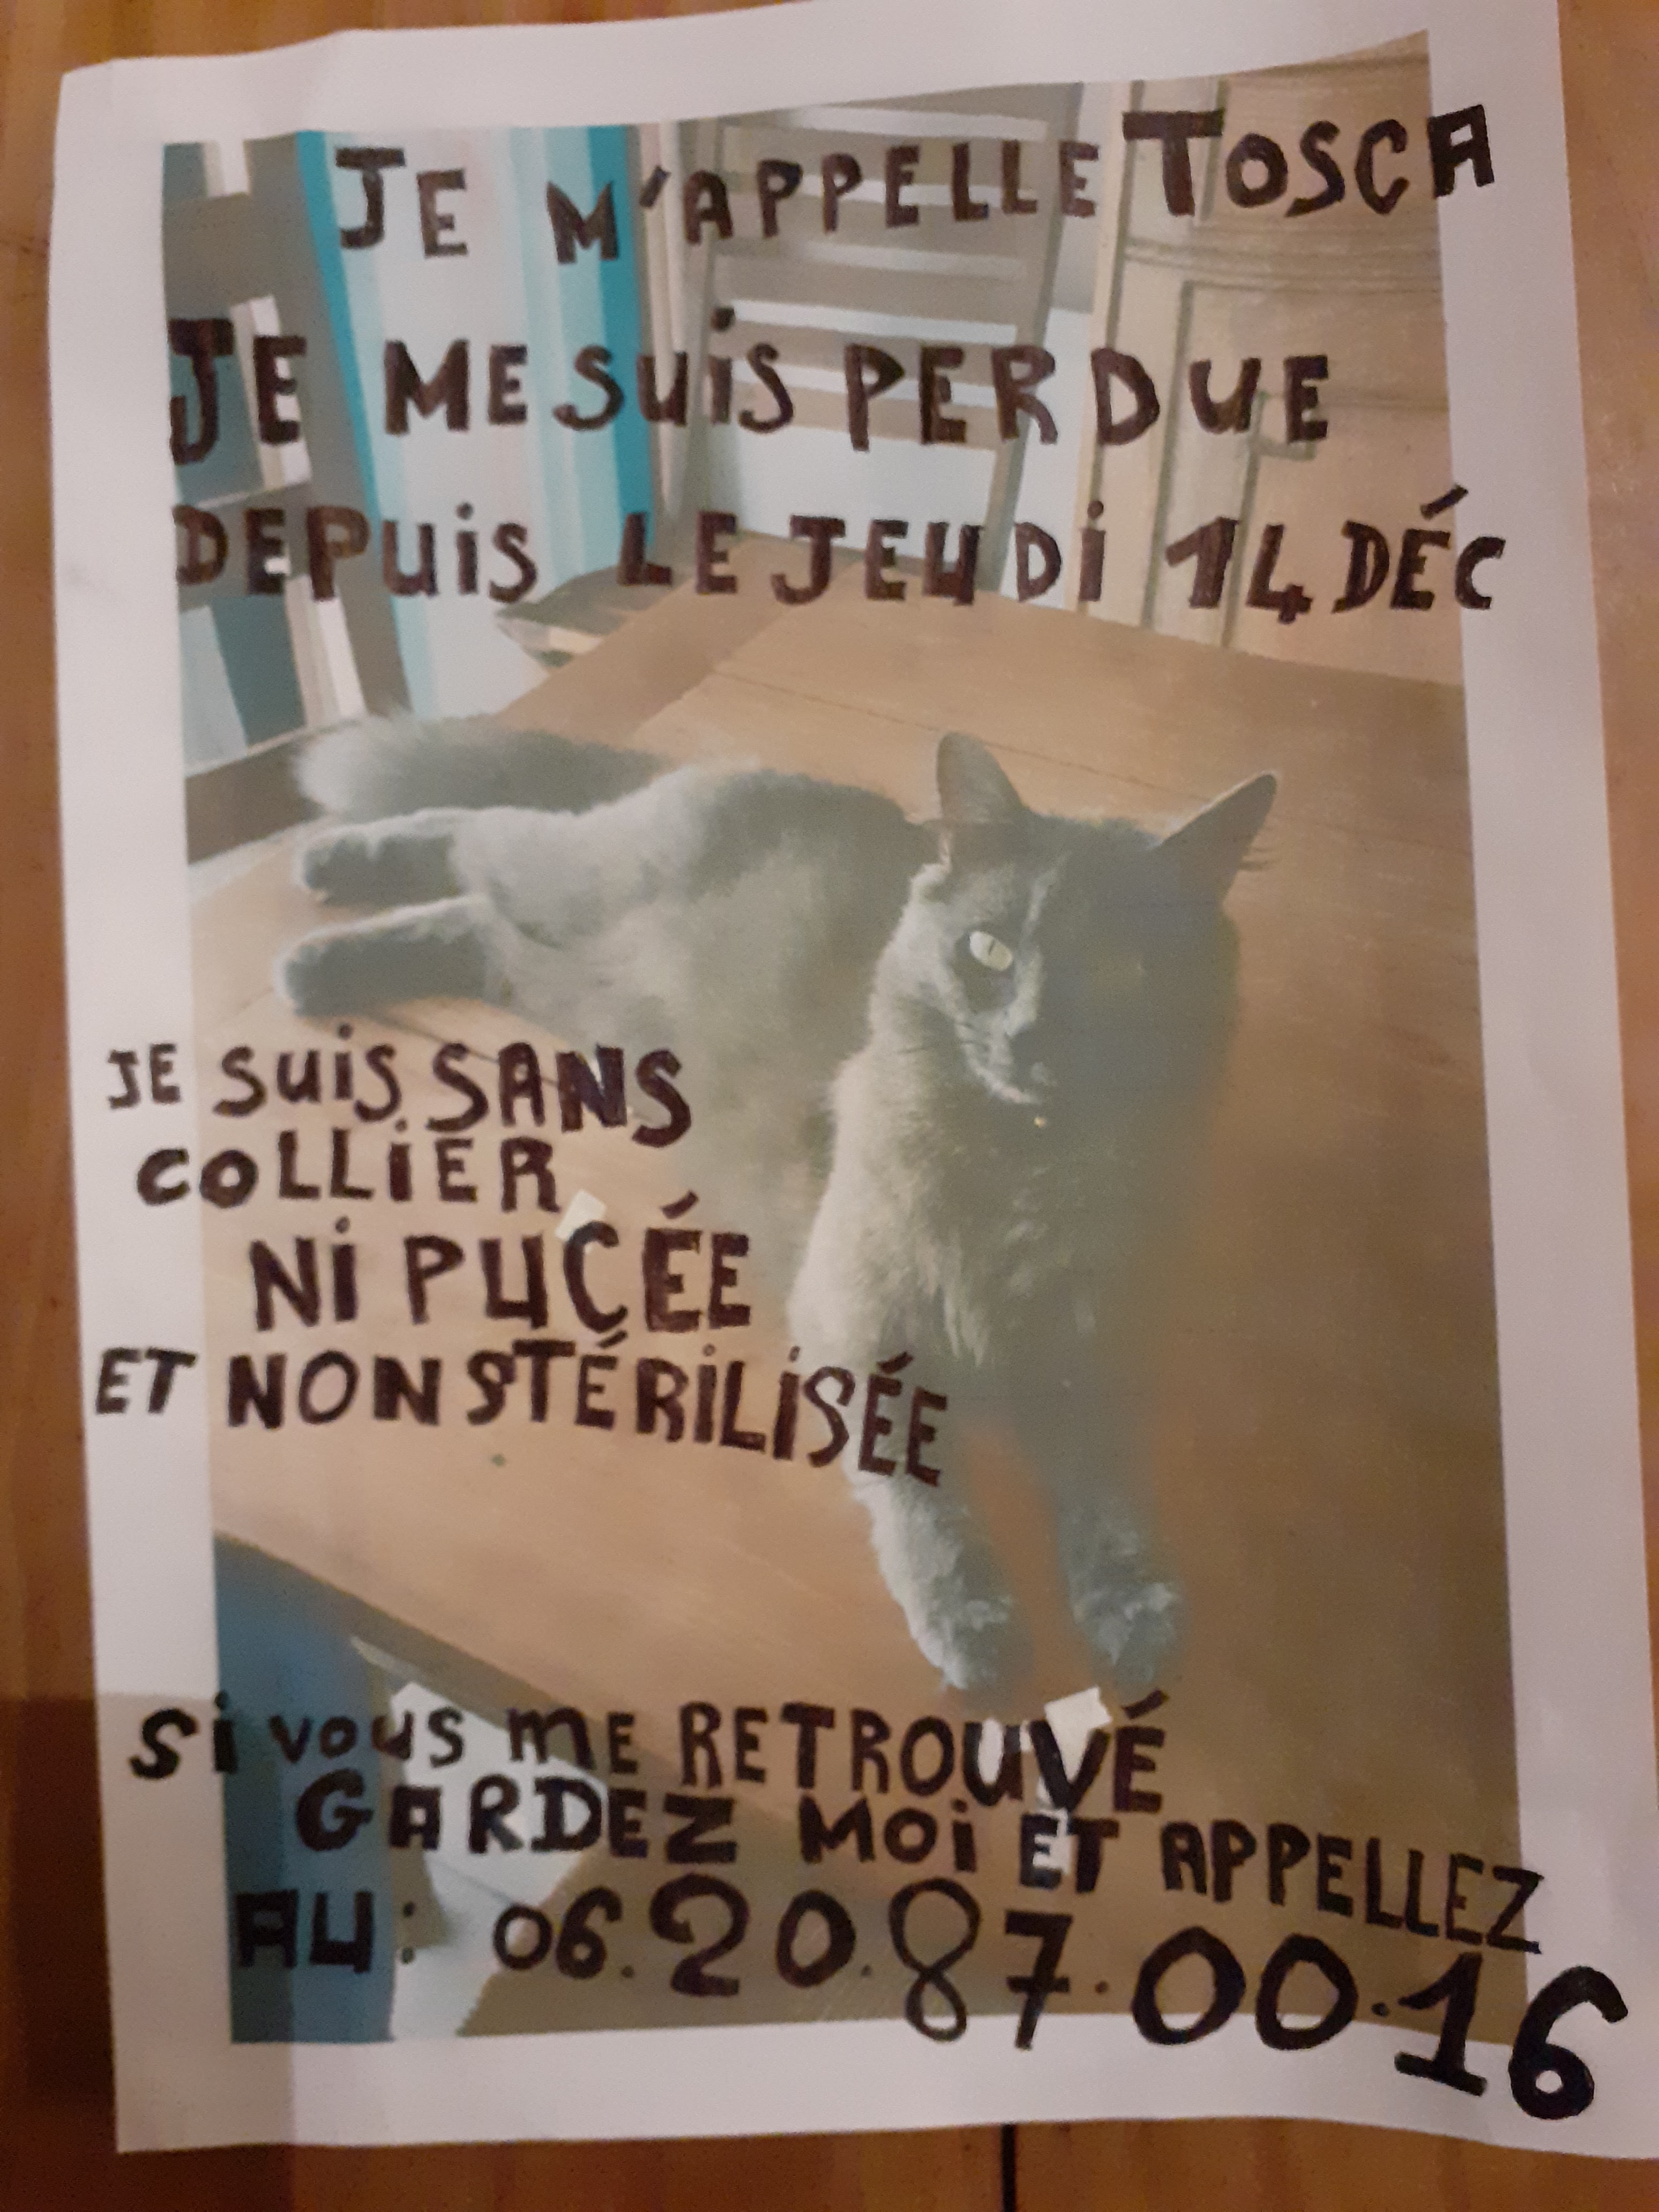 JE M'APPELLE TOSCA
JE ME SUIS PERDUE
DEPUIS LE JEUDI 14 DÉC
JE SUIS SANS
COLLIER
NI PUCÉE
ET NON STÉRILISÉE
SI VOUS ME RETROUVÉ
GARDEZ MOI ET APPELLEZ
AU : 06.20.87.00.16